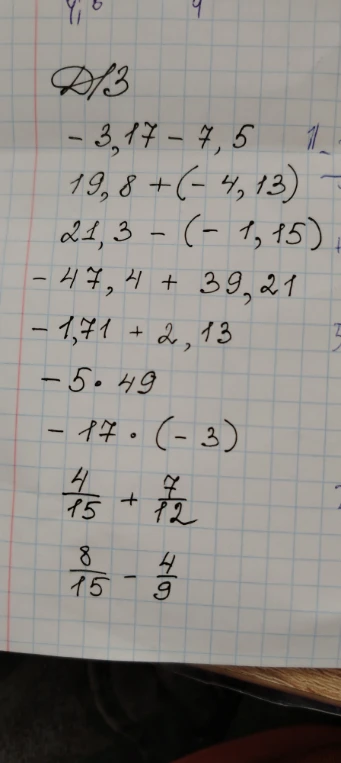 Д/З
- 3,17 - 7,5
19,8 + (- 4,13)
21,3 - (- 1,15)
- 47,4 + 39,21
- 1,71 + 2,13
- 5 · 49
- 17 · (- 3)
4/15 + 7/12
8/15 - 4/9